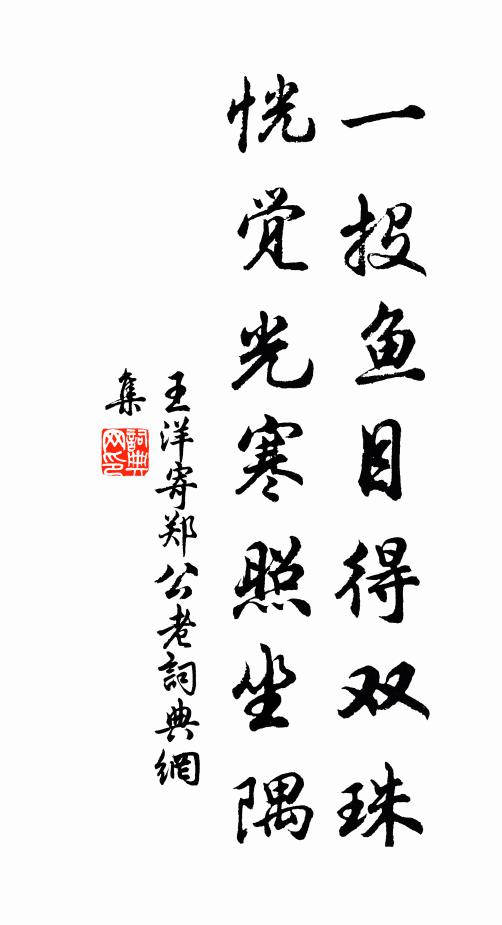 一投鱼目得双珠
恍觉光寒照坐隅
王洋寄郑公老詞典網
集
詞典
网印